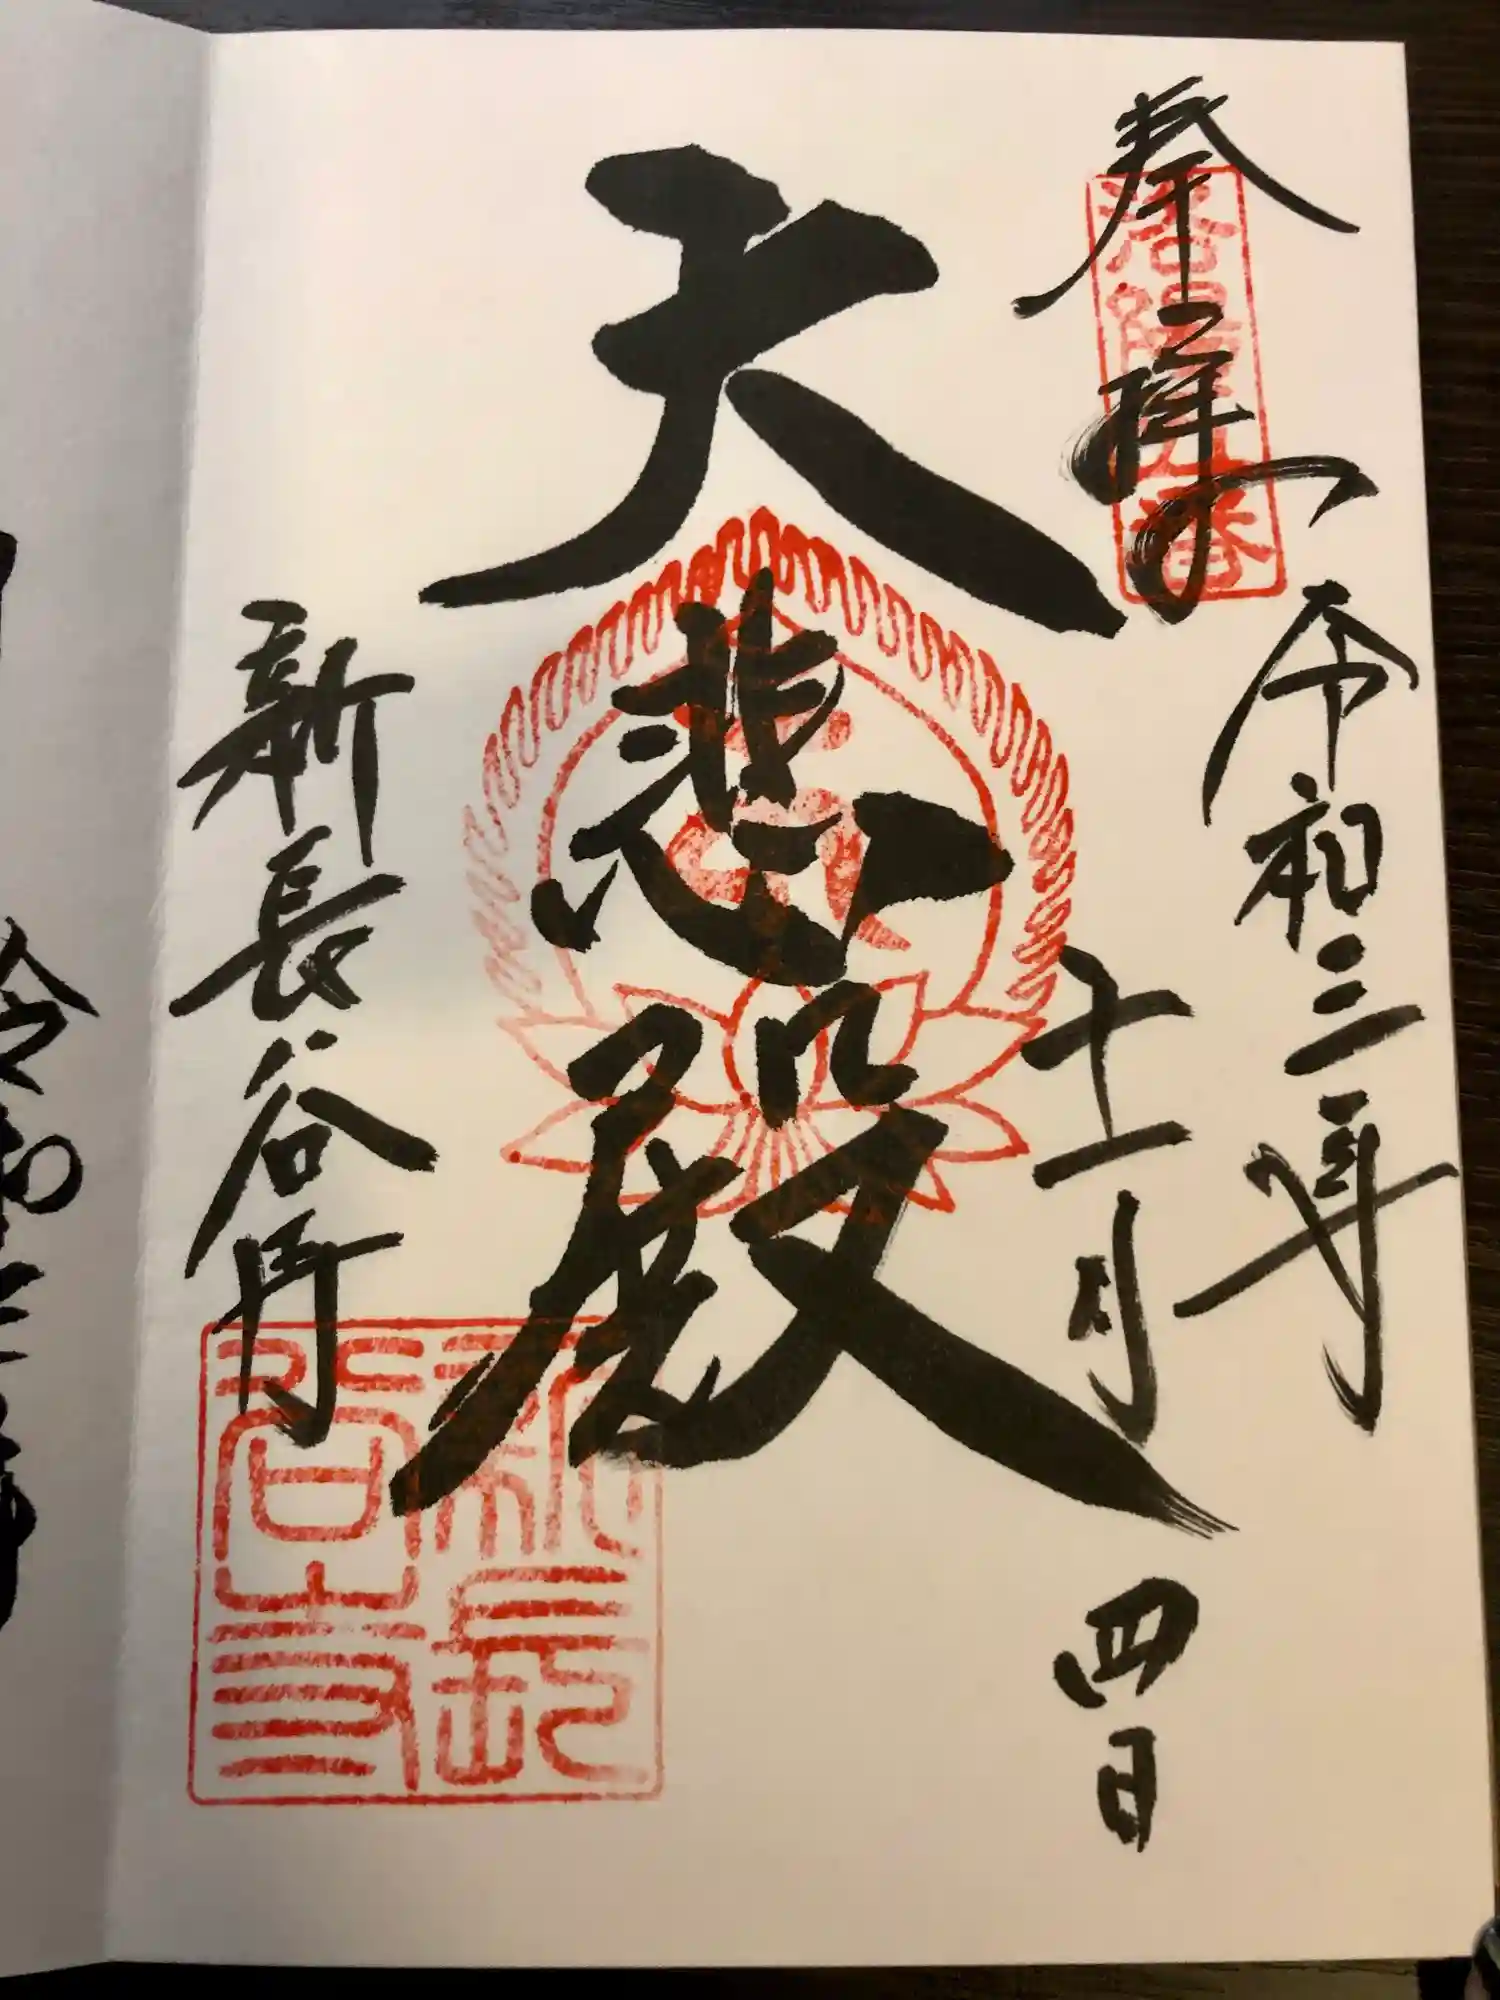 奉拝
洛陽五番
令和三年
十一月
四日
大悲殿
新長谷寺
新長谷寺
令和三年